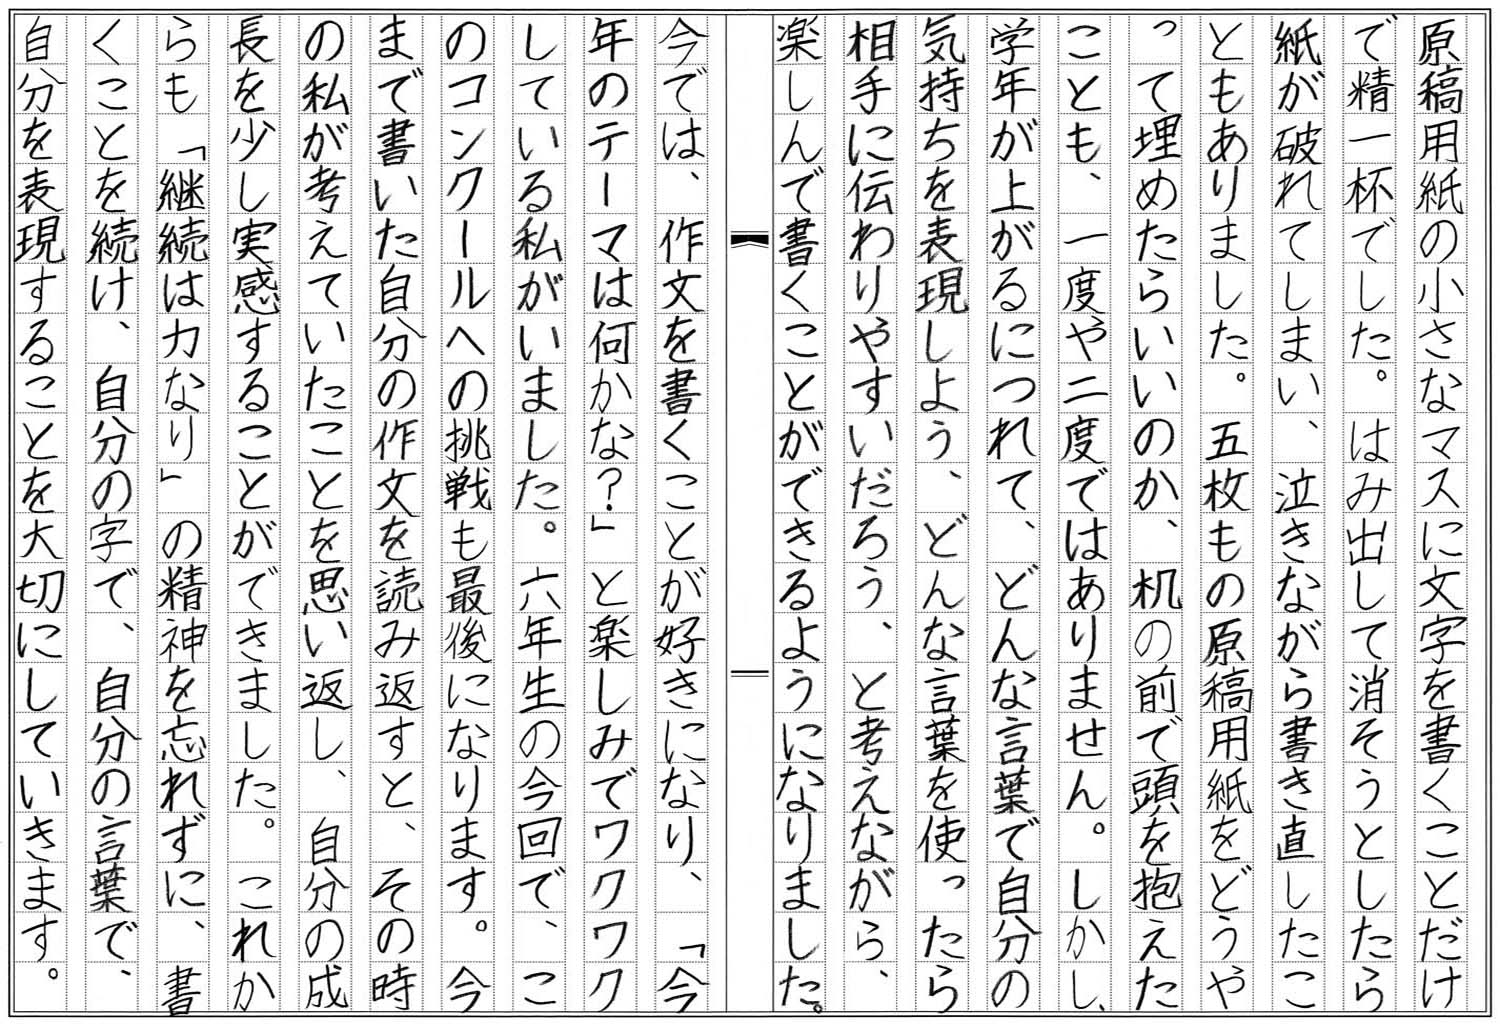 原稿用紙の小さなマスに文字を書くことだけ
で精一杯でした。はみ出して消そうとしたら
紙が破れてしまい、泣きながら書き直したこ
ともありました。五枚もの原稿用紙をどうや
って埋めたらいいのか、机の前で頭を抱えた
ことも、一度や二度ではありません。しかし、
学年が上がるにつれて、どんな言葉で自分の
気持ちを表現しよう、どんな言葉を使ったら
相手に伝わりやすいだろう、と考えながら、
楽しんで書くことができるようになりました。
今では、作文を書くことが好きになり、「今
年のテーマは何かな?」と楽しみでワクワク
している私がいました。六年生の今回で、こ
のコンクールへの挑戦も最後になります。今
まで書いた自分の作文を読み返すと、その時
の私が考えていたことを思い返し、自分の成
長を少し実感することができました。これか
らも「継続は力なり」の精神を忘れずに、書
くことを続け、自分の字で、自分の言葉で、
自分を表現することを大切にしていきます。